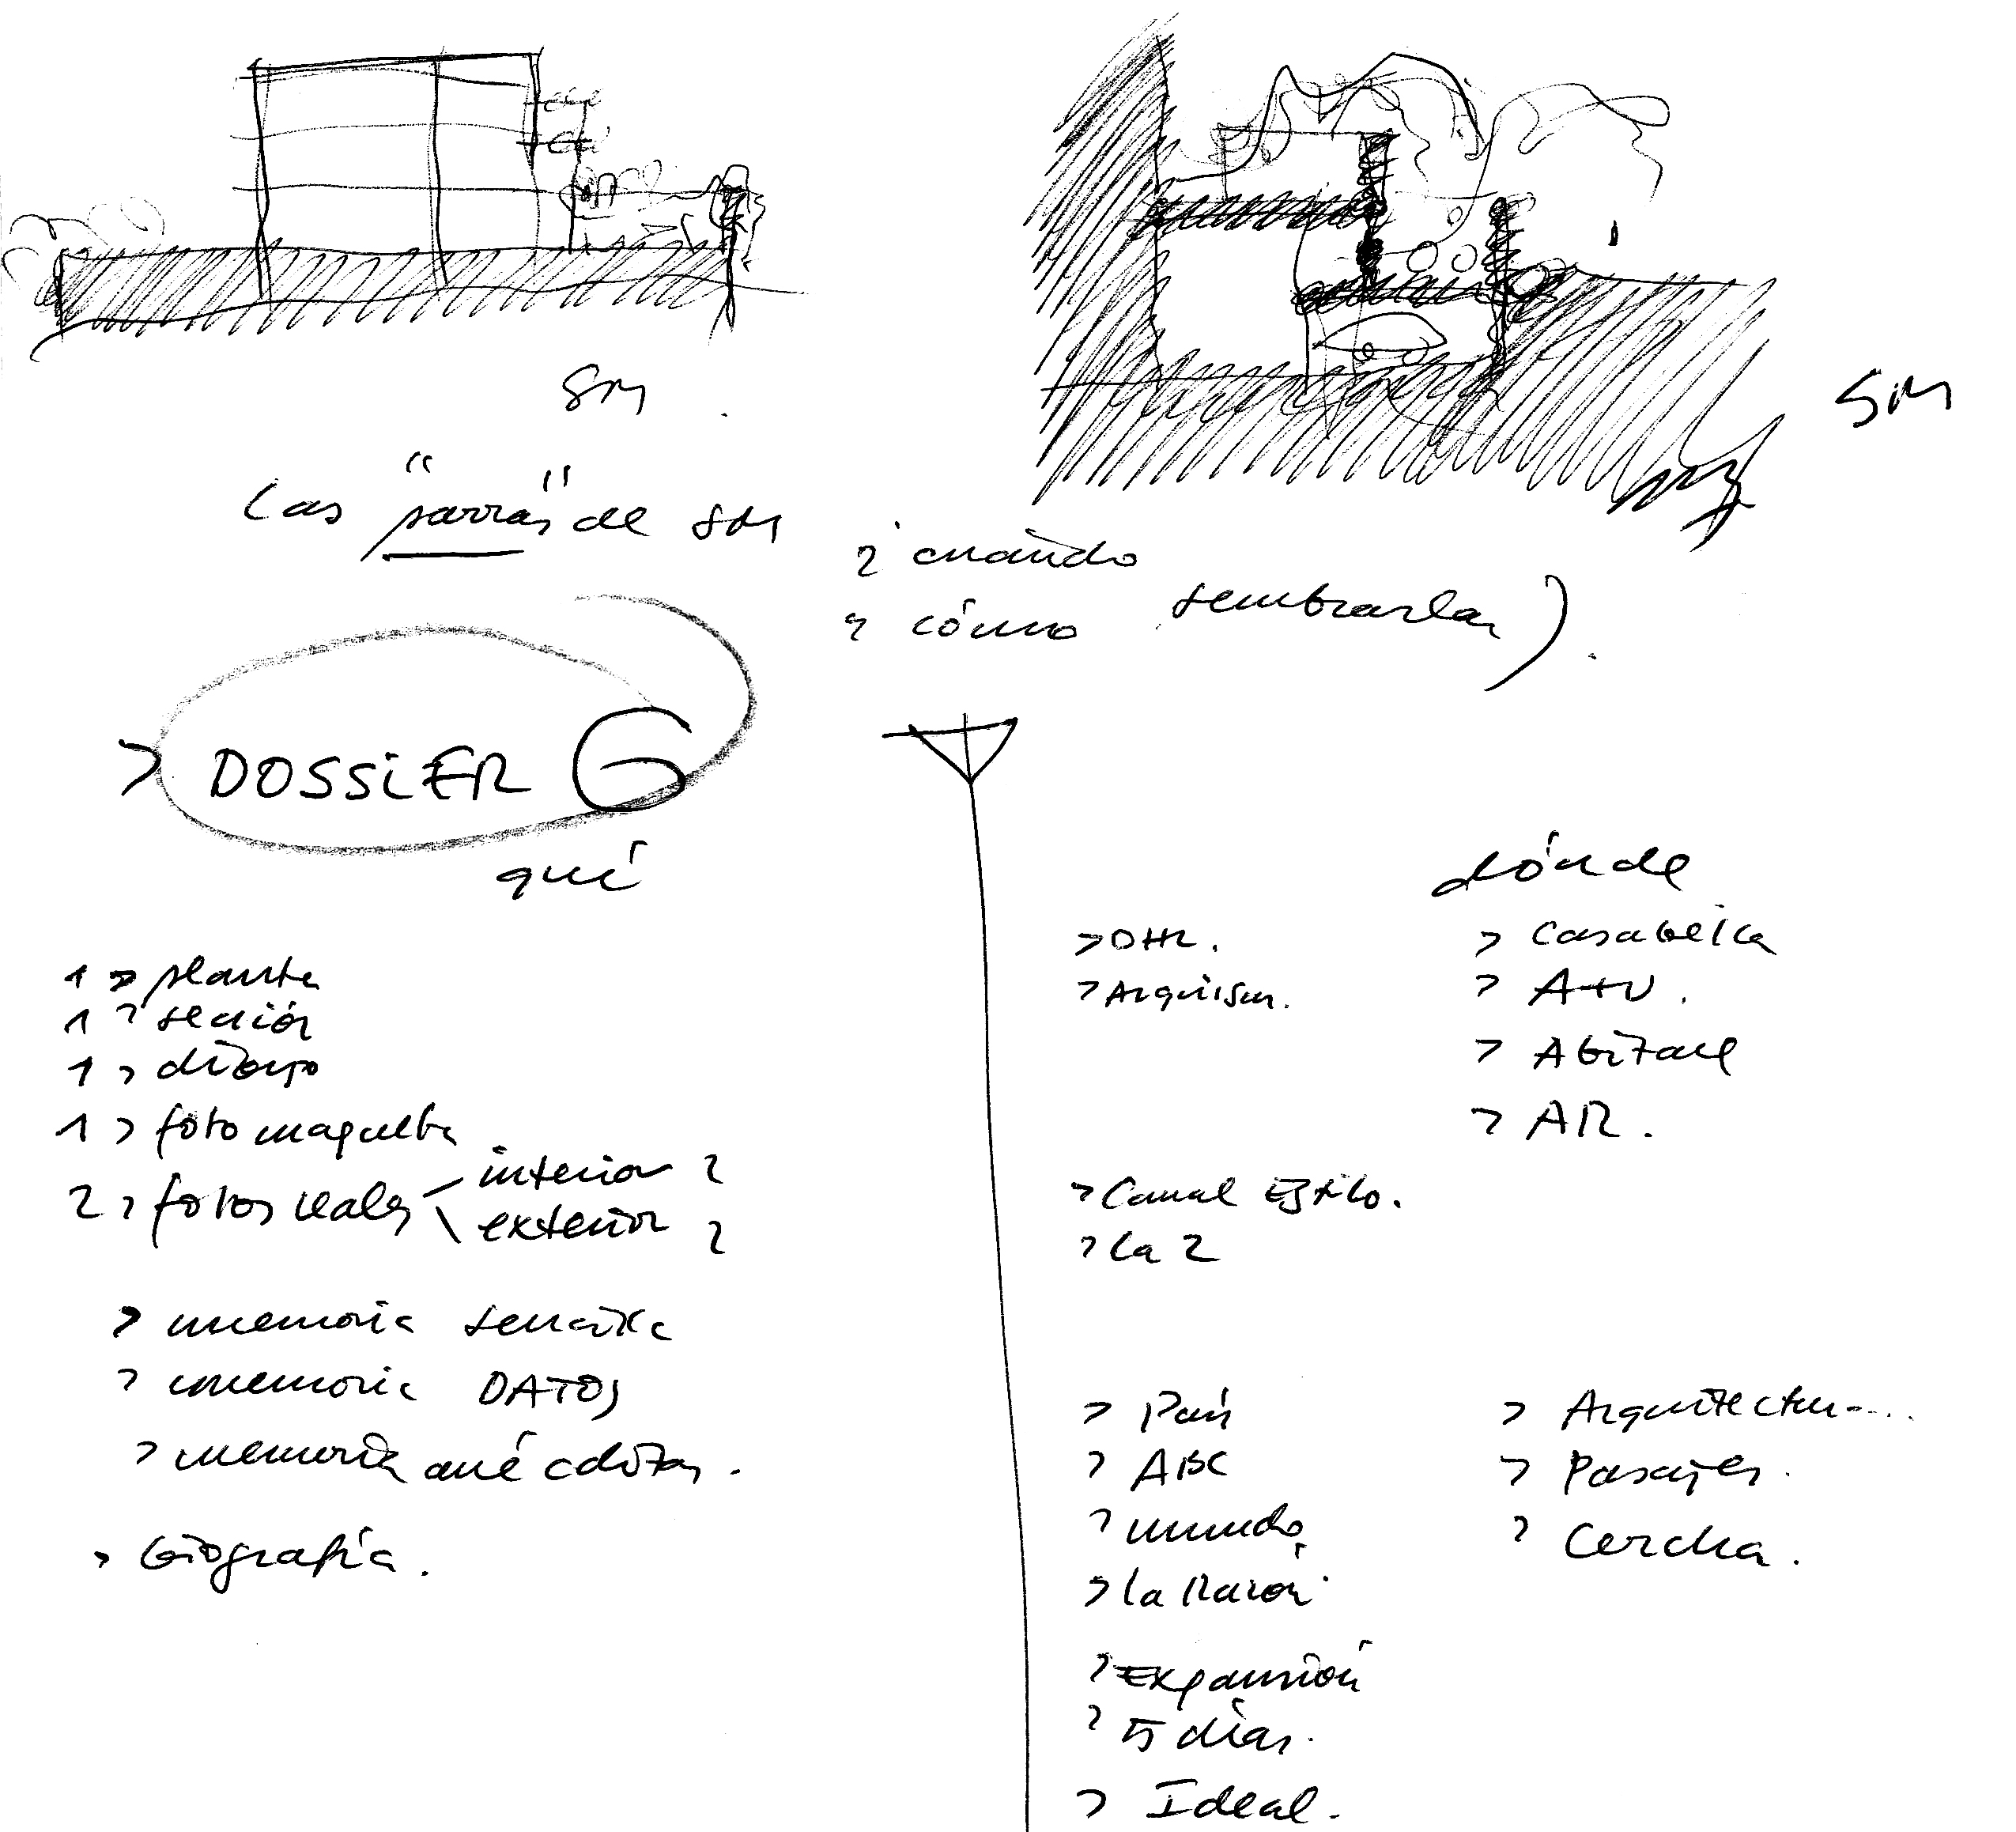 SM
SM
las "parras" de SM
> cuándo
> cómo sembrarlas )
> DOSSiER G
qué
dónde
1 > planta
1 > sección
1 > dibujo
1 > foto maqueta
2 > fotos reales < interior 2
exterior 2
> memoria sencilla
> memoria DATOS
> memoria anécdotas.
> biografía.
> Arquisur.
> Canal Estilo.
> la 2
> País
> ABC
> mundo
> la Razón
> Expansión
> 5 días.
> Ideal.
> Casabella
> A+U.
> Abitare
> AR.
> Arquitectu-...
> Pasajes.
> Cercha.